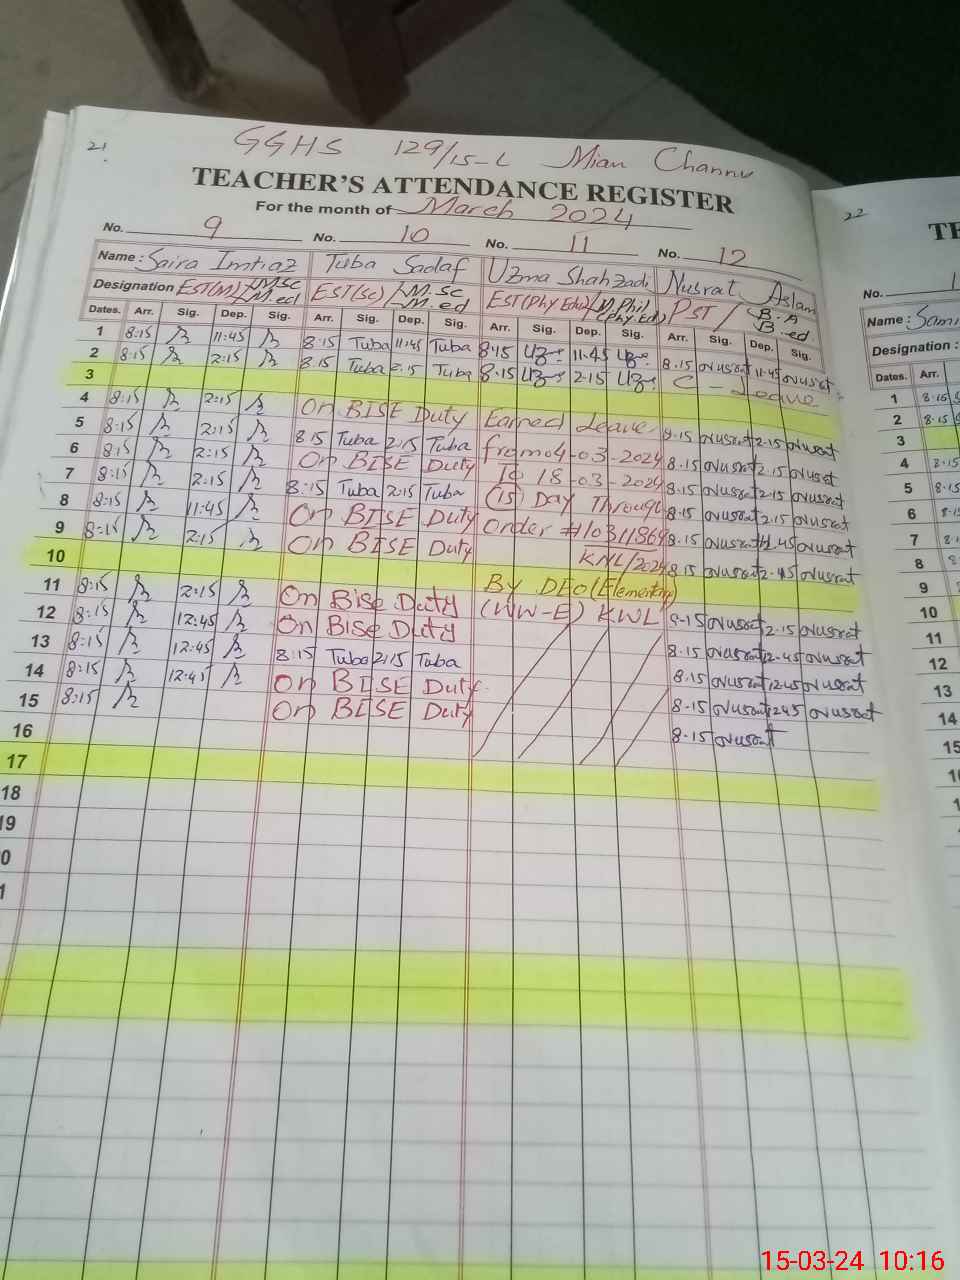 21
GGHS 129/15-L Mian Channu
TEACHER'S ATTENDANCE REGISTER
For the month of March 2024
No. 9 No. 10 No. 11 No. 12
Name : Saira Imtiaz Tuba Sadaf Uzma Shahzadi Nusrat Aslam
Designation EST(M) / M.Sc M.ed EST(Sc) / M.Sc M.ed EST(Phy Edu) / M.Phil (Phy.Ed) PST / B.A B-ed
Dates. Arr. Sig. Dep. Sig. Arr. Sig. Dep. Sig. Arr. Sig. Dep. Sig. Arr. Sig. Dep. Sig.
1 8:15 11:45 8:15 Tuba 11:45 Tuba 8:15 11.45 8.15 Nusrat 11.45 Nusrat
2 8:15 2:15 8:15 Tuba 2:15 Tuba 8.15 2.15 C - Leave
3
4 8:15 2:15 On BISE Duty Earned Leave 8.15 Nusrat 2.15 Nusrat
5 8:15 2:15 8:15 Tuba 2:15 Tuba from 04-03-2024 8.15 Nusrat 2.15 Nusrat
6 8:15 2:15 On BISE Duty To 18-03-2024 8.15 Nusrat 2.15 Nusrat
7 8:15 2:15 8:15 Tuba 2:15 Tuba (15) Day Through 8.15 Nusrat 2.15 Nusrat
8 8:15 11:45 On BISE Duty Order # 10311869 8.15 Nusrat 11.45 Nusrat
9 8:15 2:15 On BISE Duty KNL/2024 8.15 Nusrat Nusrat
10 By DEO (Elementary)
11 8:15 2:15 On Bise Duty (WW-E) KWL 8.15 Nusrat 2.15 Nusrat
12 8:15 12:45 On Bise Duty 8.15 Nusrat 12.45 Nusrat
13 8:15 12:45 8:15 Tuba 2:15 Tuba 8.15 Nusrat 12.45 Nusrat
14 8:15 12:45 On BISE Duty 8.15 Nusrat 12.45 Nusrat
15 8:15 On BISE Duty 8.15 Nusrat
16
17
18
19
22
No.
Name :
Designation :
Dates. Arr.
1 8:15
2 8:15
3
4 8:15
5 8:15
6
7
8
9
10
11
12
13
14
15
15-03-24 10:16